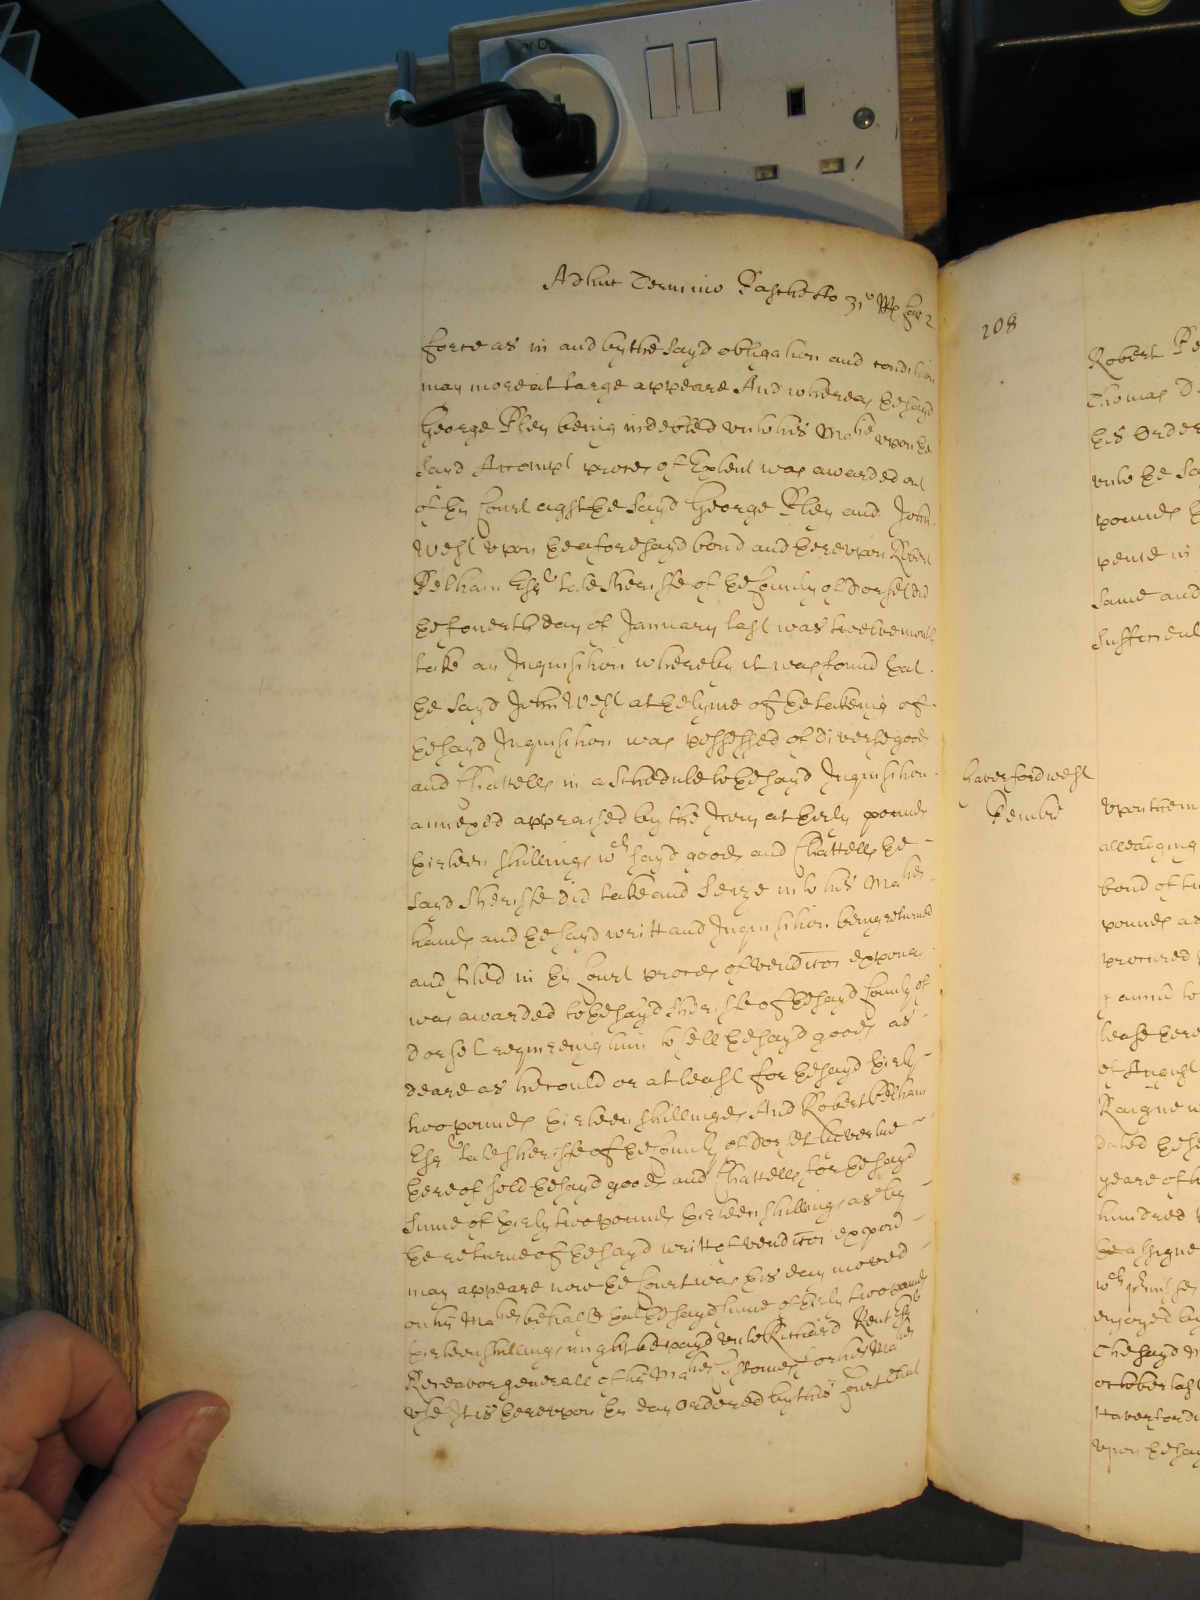 Adhuc Termino Paschetto 31º Rs Car 2
force as in and by the sayd obligation and condition
may more at large appeare And whereas the sayd
George Pley being indebted unto his Matie upon the
sayd Accompt proces of Extent was awarded out
of this Court agst the sayd George Pley and John
West upon the aforesayd bond and thereupon Robert
Pelham Esqr late Sheriffe of the County of Dorset did
the fourth day of January last was twelve month
take an Inquisition whereby it was found that
the sayd John West at the tyme of the takeing of
the sayd Inquisition was possessed of diverse goods
and Chattells in a Schedule to the sayd Inquisition
annexed appraised by the Jury at thirty pounds
thirteen shillings wch sayd goods and Chattells the
sayd Sheriffe did take and Seize into his Maties
hands and the sayd writt and Inquisition being returned
and filed in this Court proces of venditioni expona
was awarded to the sayd Sheriffe of the sayd County of
Dorset requireing him to sell the sayd goods as
deare as he could or at least for the sayd thirty
two pounds thirteen shillings And Robert Pelham
Esqr late sheriffe of the County of Dorset by vertue
thereof sold the sayd goods and Chattells for the sayd
sume of thirty two pounds thirteen shillings as by
the returne of the sayd writt of venditioni expon
may appeare now the Court was this day moved
on his Maties behalfe that the sayd sume of thirty two pounds
thirteen shillings might be payd unto Richard Kent Esqr
Receavor generall of his Maties Customes for his Maties
use It is thereupon this day Ordered by this Court that
208
Haverfordwest
Pembr
Robert Pe
Thomas D
his Order
unto the Sa
pounds
pence in
same and
sufficient
upon them
alleadging
bond of
pounds
procured
p annu to
lease
of August
Raigne
dated the
yeare of
hundred
the assigne
wch
enjoyed by
The sayd
october last
Haverford
upon the say